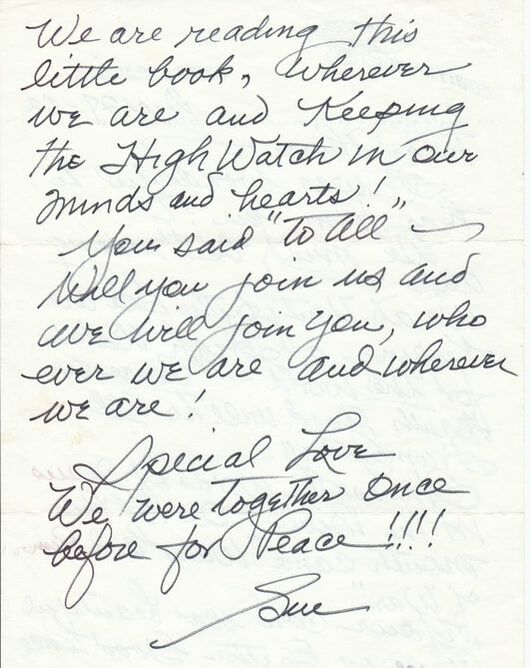 We are reading this
little book, wherever
we are and Keeping
the High Watch in our
minds and hearts!
You said "to all"
Will you join us and
we will join you, who
ever we are and wherever
we are!
Special Love
We were together once
before for Peace!!!!
Sue